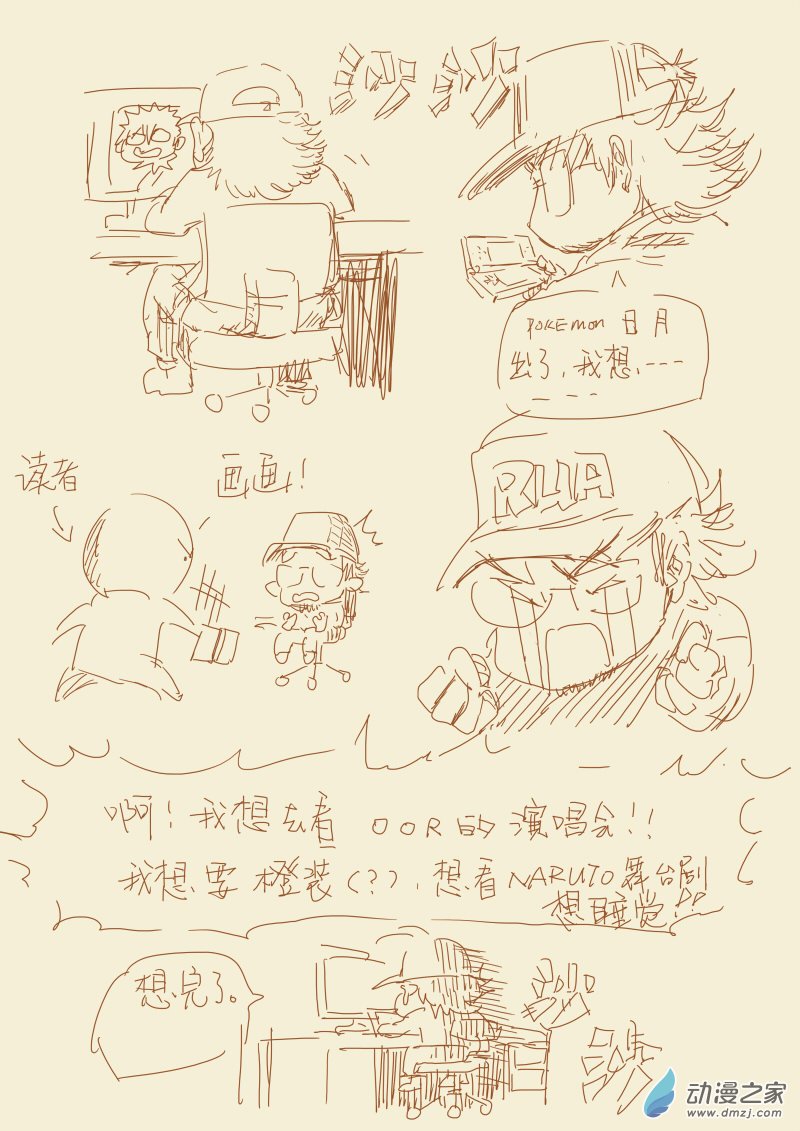 POKEMON 日月
出了，我想，---
----
读者
画画！
RUA
啊！我想去看 OOR的演唱会！！
我想要橙装(?)，想看NARUTO舞台剧
想睡觉！！
想完了。
动漫之家
www.dmzj.com